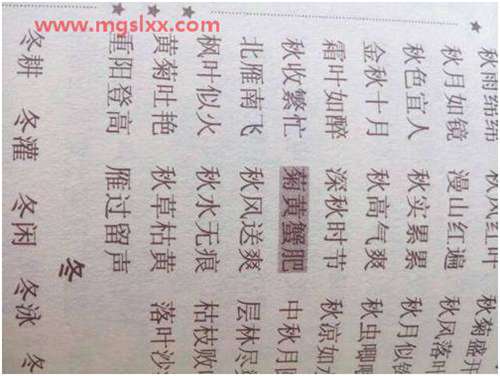 www.mgslxx.com
秋雨绵绵 秋风红叶 秋菊盛开
秋月如镜 漫山红遍 秋风落叶
秋色宜人 秋实累累 秋月似
金秋十月 秋高气爽 秋虫唧唧
霜叶如醉 深秋时节 秋凉如水
秋收繁忙 菊黄蟹肥 中秋月
北雁南飞 秋风送爽 层林尽
枫叶似火 秋水无痕 枯枝败
黄菊吐艳 秋草枯黄 落叶沙
重阳登高 雁过留声
冬
冬耕 冬灌 冬闲 冬泳 冬